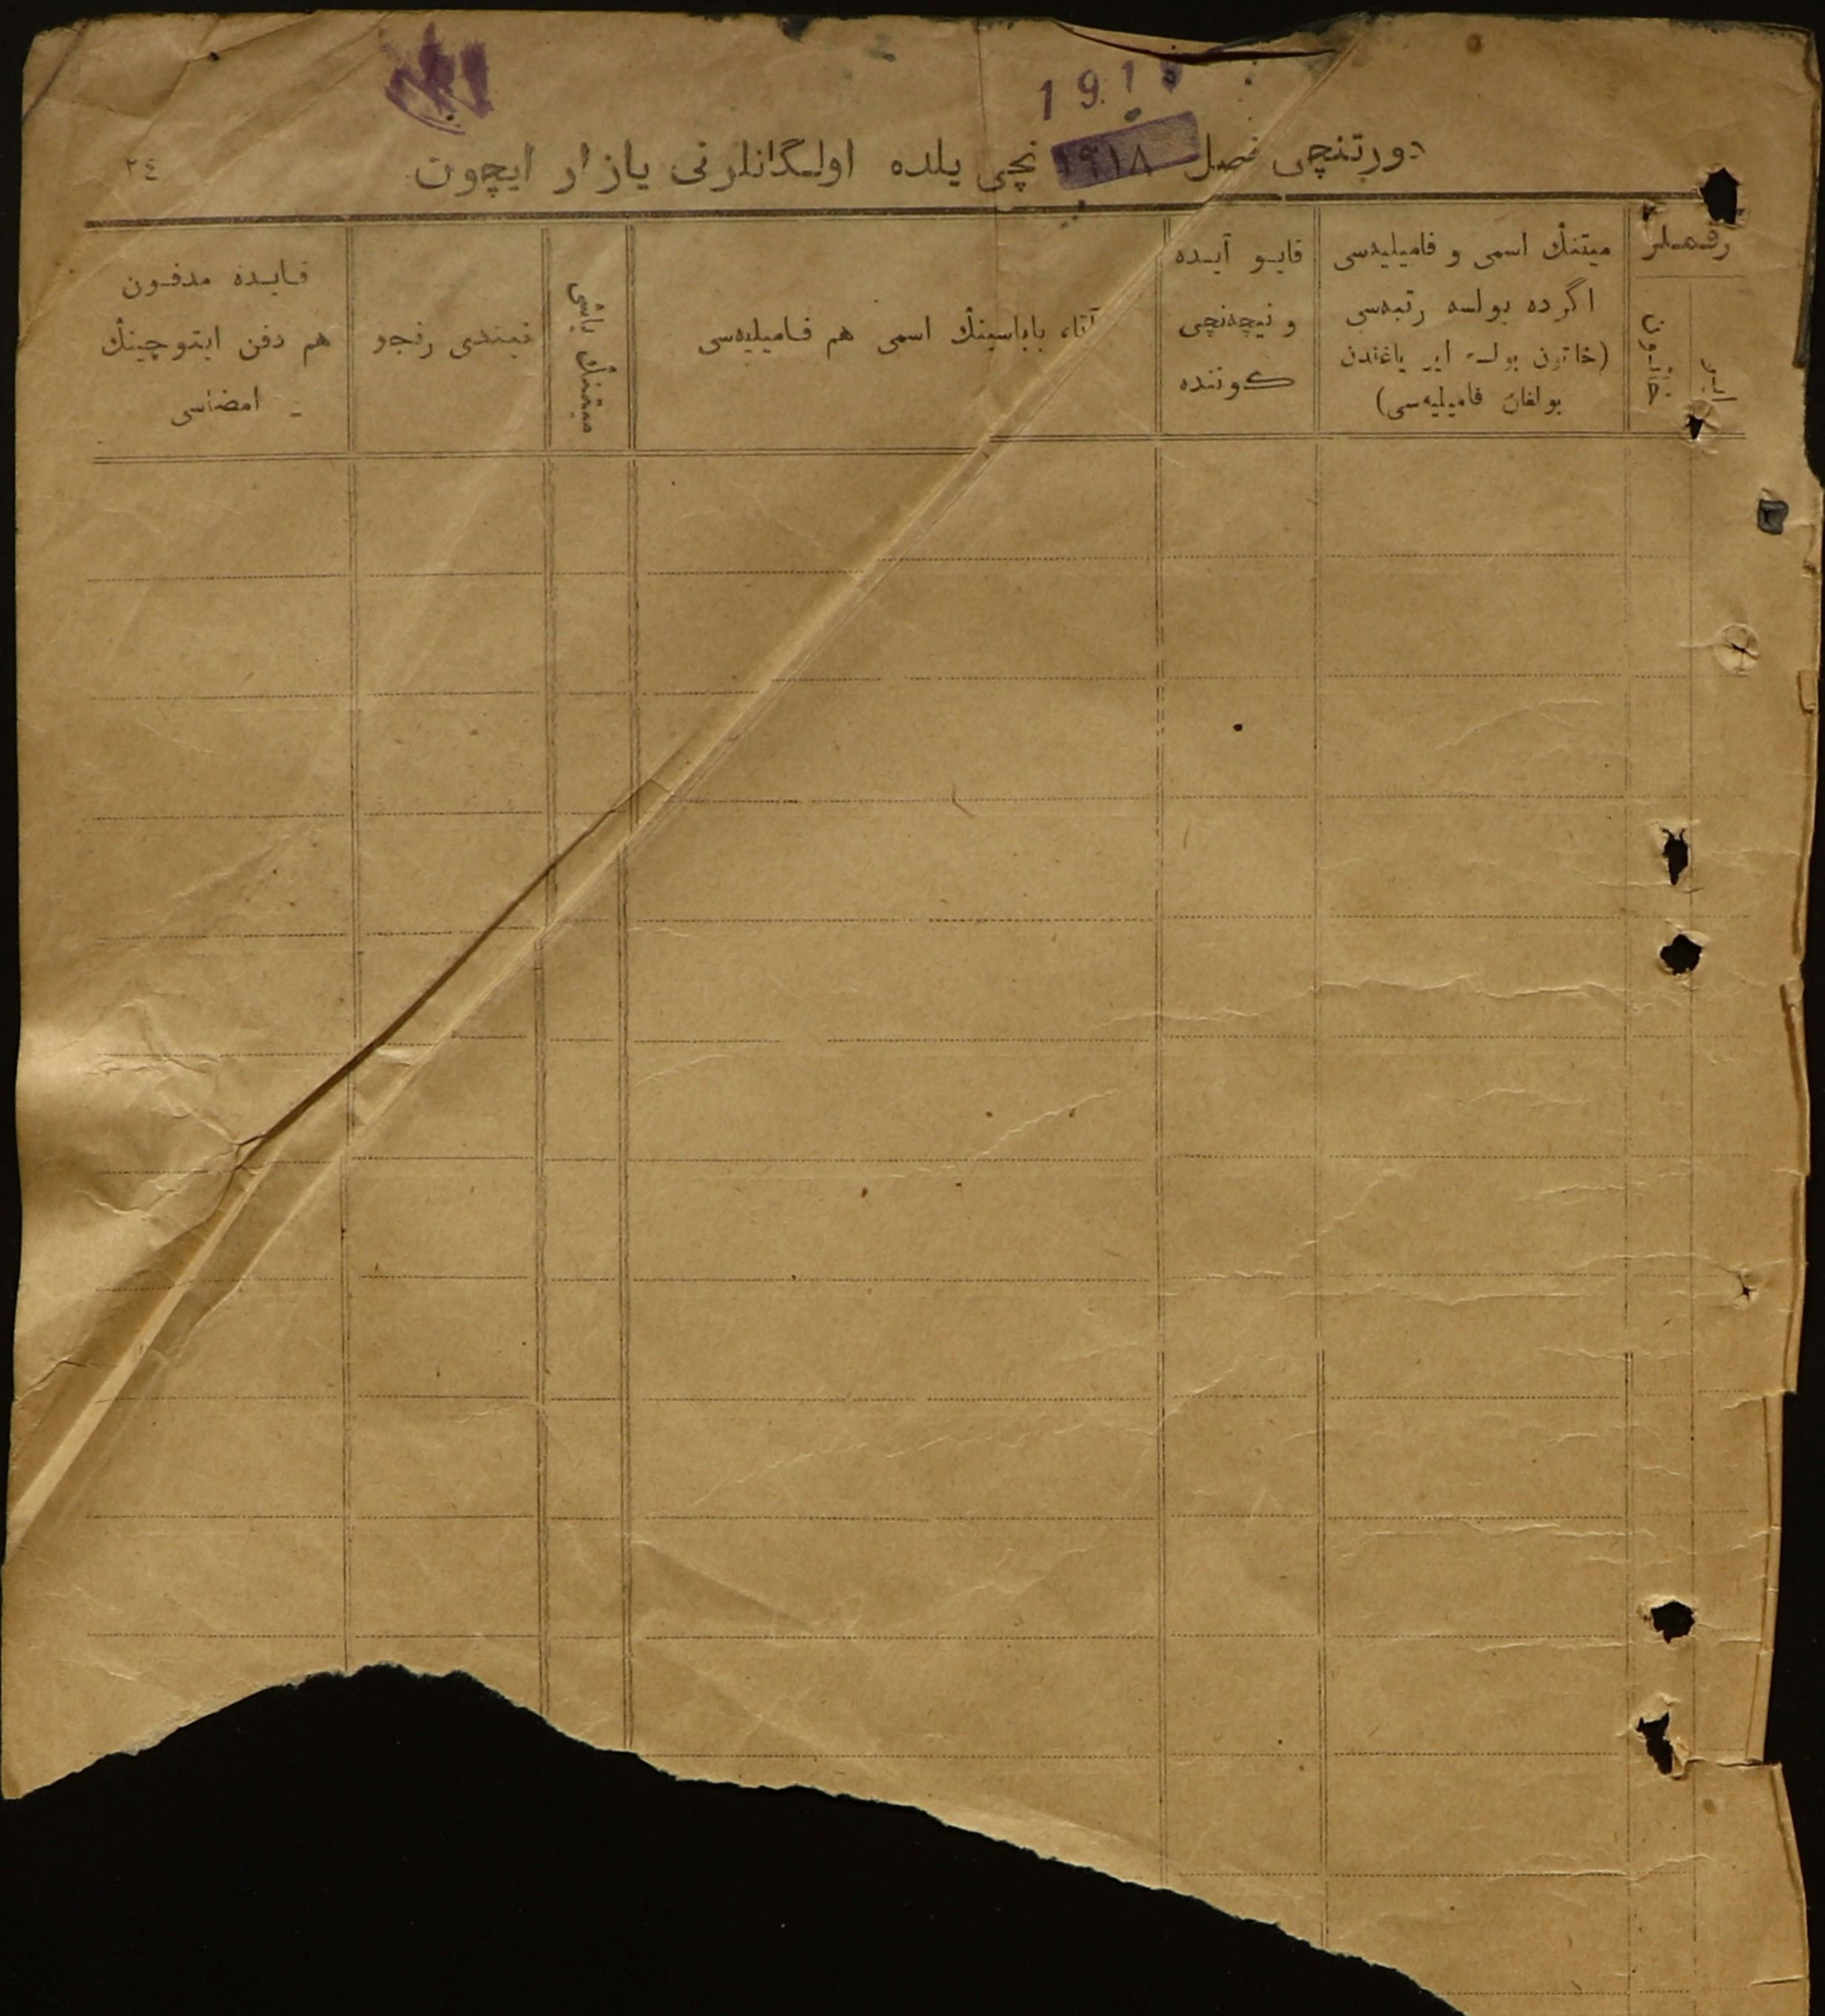 دورتنچی فصل ١٩١٨ نچی یلده اولگانلرنی یازار ایچون
٢٤
رقملر
خاتون
ایر
میتنڭ اسمی و فامیلیه‌سی
اگرده بولسه رتبه‌سی
(خاتون بولسه ایر یاغندن
بولغان فامیلیه‌سی)
قایو آیده
و نیچه‌نچی
كوننده
آتا، باباسینڭ اسمی هم فامیلیه‌سی
میتنڭ یاشی
نیندی رنجو
قایده مدفون
هم دفن ایتوچینڭ
امضاسی